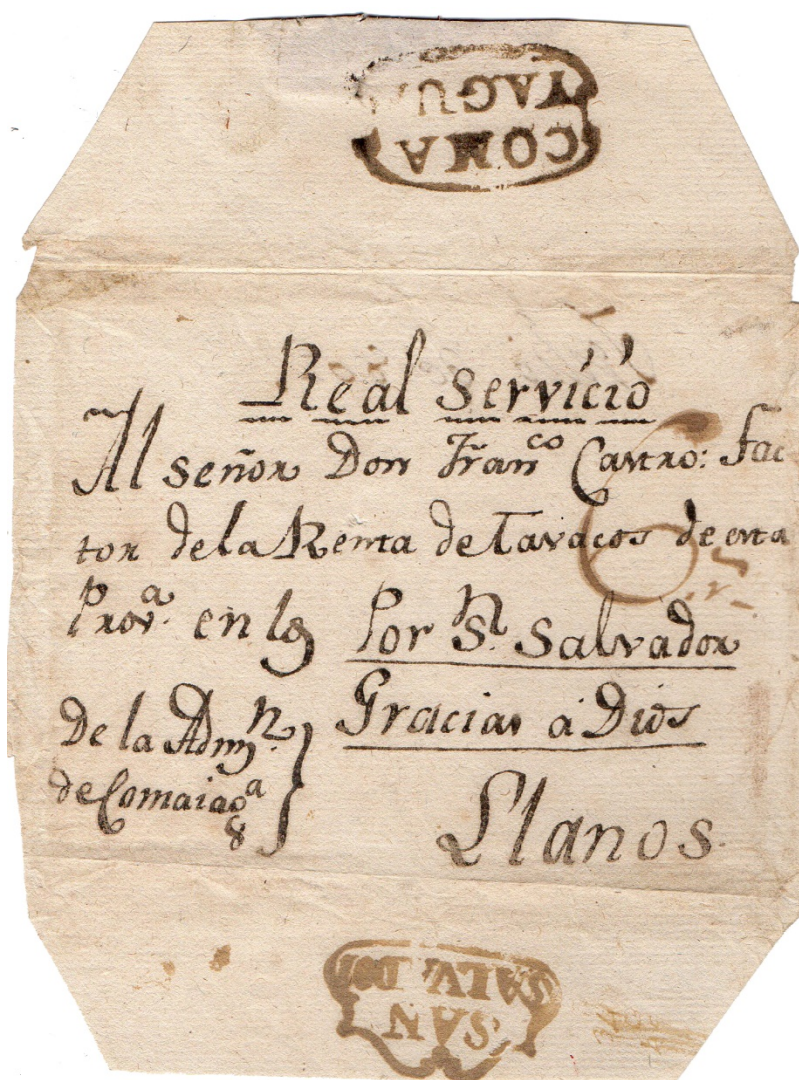 COMA
YAGUA
Real Servicio
Al señor Don Fran.co Castro: Fac
tor de la Renta de Tavacos de esta
Prov.a en los
Por S.n Salvador
Gracias á Dios
Llanos.
De la Adm.n
de Comaiag.a
SAN
SALVADOR